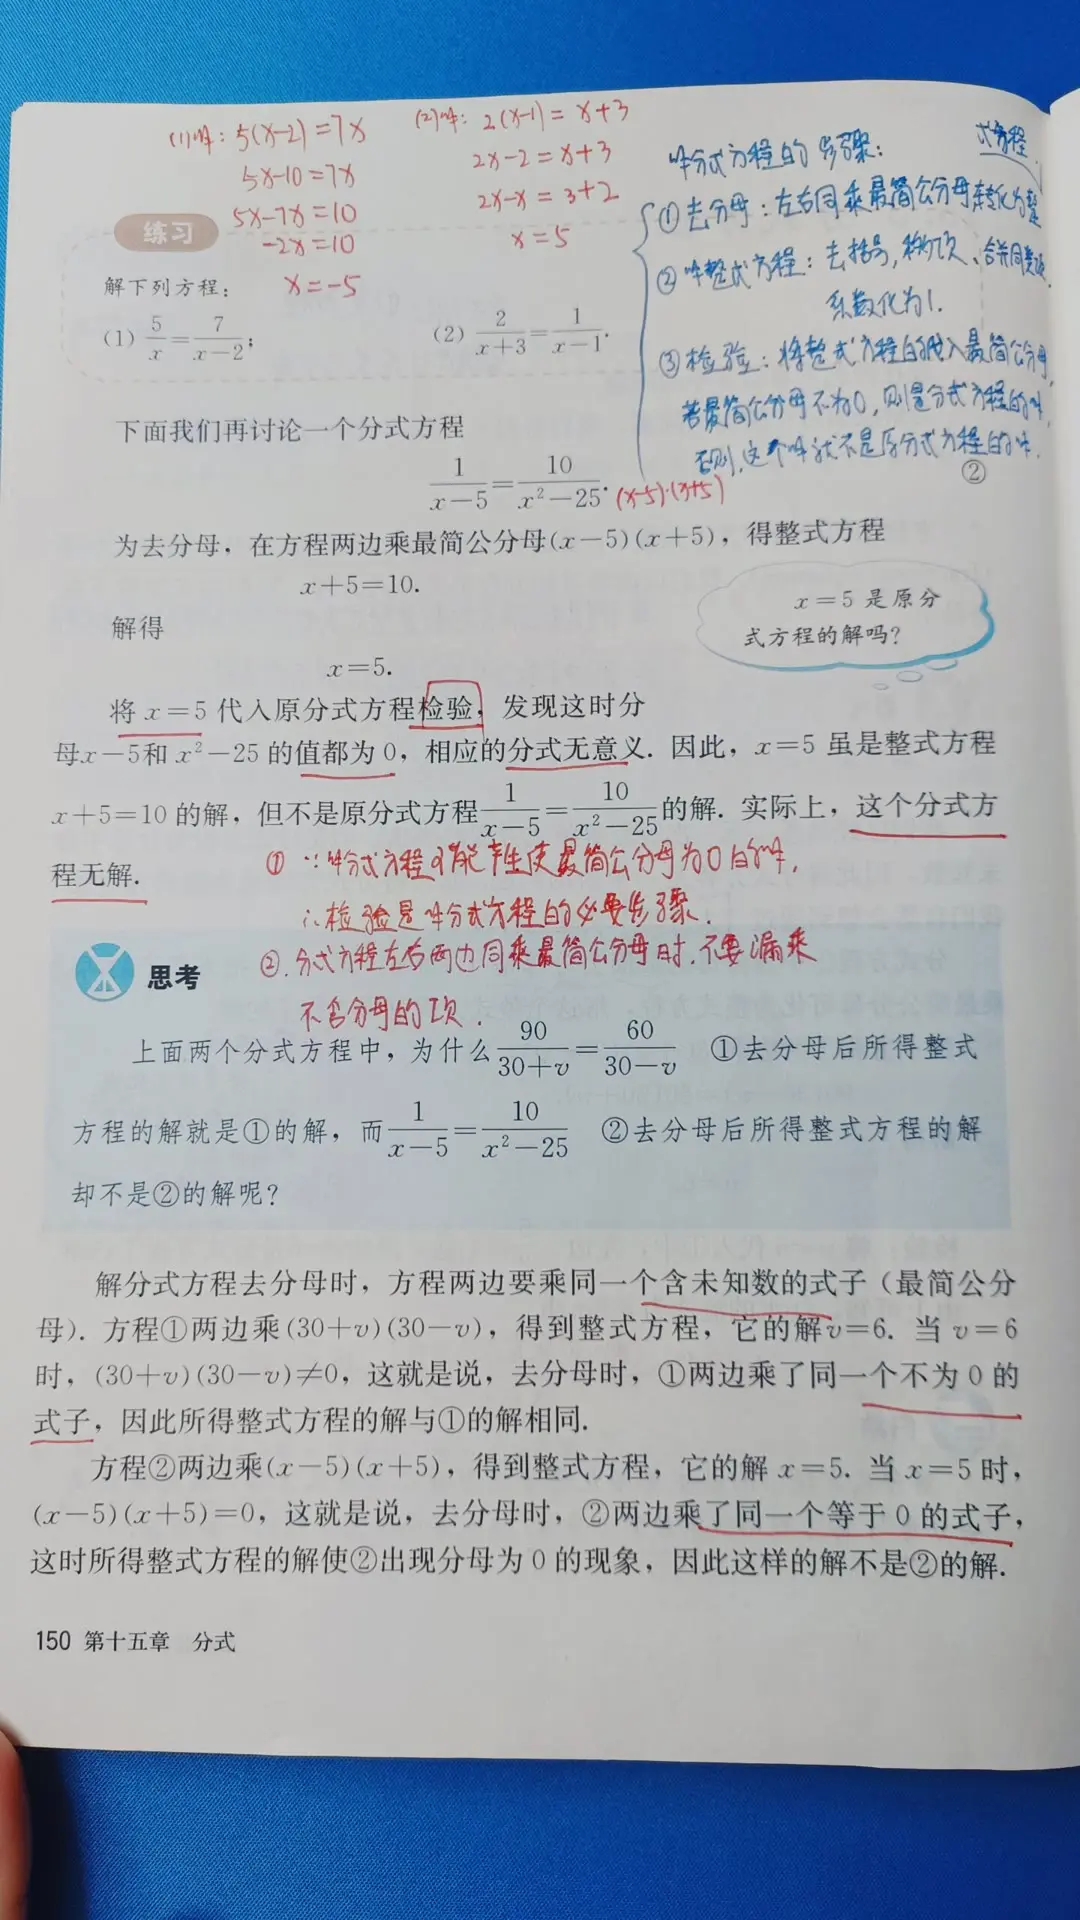 (1)解: 5(x-2)=7x
5x-10=7x
5x-7x=10
-2x=10
x=-5
(2)解: 2(x-1)=x+3
2x-2=x+3
2x-x=3+2
x=5
解分式方程的步骤:
①去分母:左右同乘最简公分母转化为整
式方程.
②解整式方程:去括号,移项、合并同类项.
系数化为1.
③检验:将整式方程的解代入最简公分母,
若最简公分母不为0,则是分式方程的解.
否则,这个解就不是原分式方程的解.
练习
解下列方程:
(1) 5/x=7/(x-2);
(2) 2/(x+3)=1/(x-1).
下面我们再讨论一个分式方程
1/(x-5)=10/(x²-25). (x-5)·(x+5) ②
为去分母,在方程两边乘最简公分母(x-5)(x+5),得整式方程
x+5=10.
解得
x=5.
x=5 是原分
式方程的解吗?
将 x=5 代入原分式方程检验,发现这时分
母x-5和 x²-25 的值都为 0,相应的分式无意义. 因此,x=5 虽是整式方程
x+5=10 的解,但不是原分式方程1/(x-5)=10/(x²-25)的解. 实际上,这个分式方
程无解.
① ∵解分式方程可能产生使最简公分母为0的解,
∴检验是解分式方程的必要步骤.
②.分式方程左右两边同乘最简公分母时.不要漏乘
不含分母的项.
思考
上面两个分式方程中,为什么90/(30+v)=60/(30-v) ①去分母后所得整式
方程的解就是①的解,而1/(x-5)=10/(x²-25) ②去分母后所得整式方程的解
却不是②的解呢?
解分式方程去分母时,方程两边要乘同一个含未知数的式子(最简公分
母). 方程①两边乘(30+v)(30-v),得到整式方程,它的解v=6. 当 v=6
时,(30+v)(30-v)≠0,这就是说,去分母时,①两边乘了同一个不为 0 的
式子,因此所得整式方程的解与①的解相同.
方程②两边乘(x-5)(x+5),得到整式方程,它的解 x=5. 当 x=5 时,
(x-5)(x+5)=0,这就是说,去分母时,②两边乘了同一个等于 0 的式子,
这时所得整式方程的解使②出现分母为 0 的现象,因此这样的解不是②的解.
150 第十五章 分式